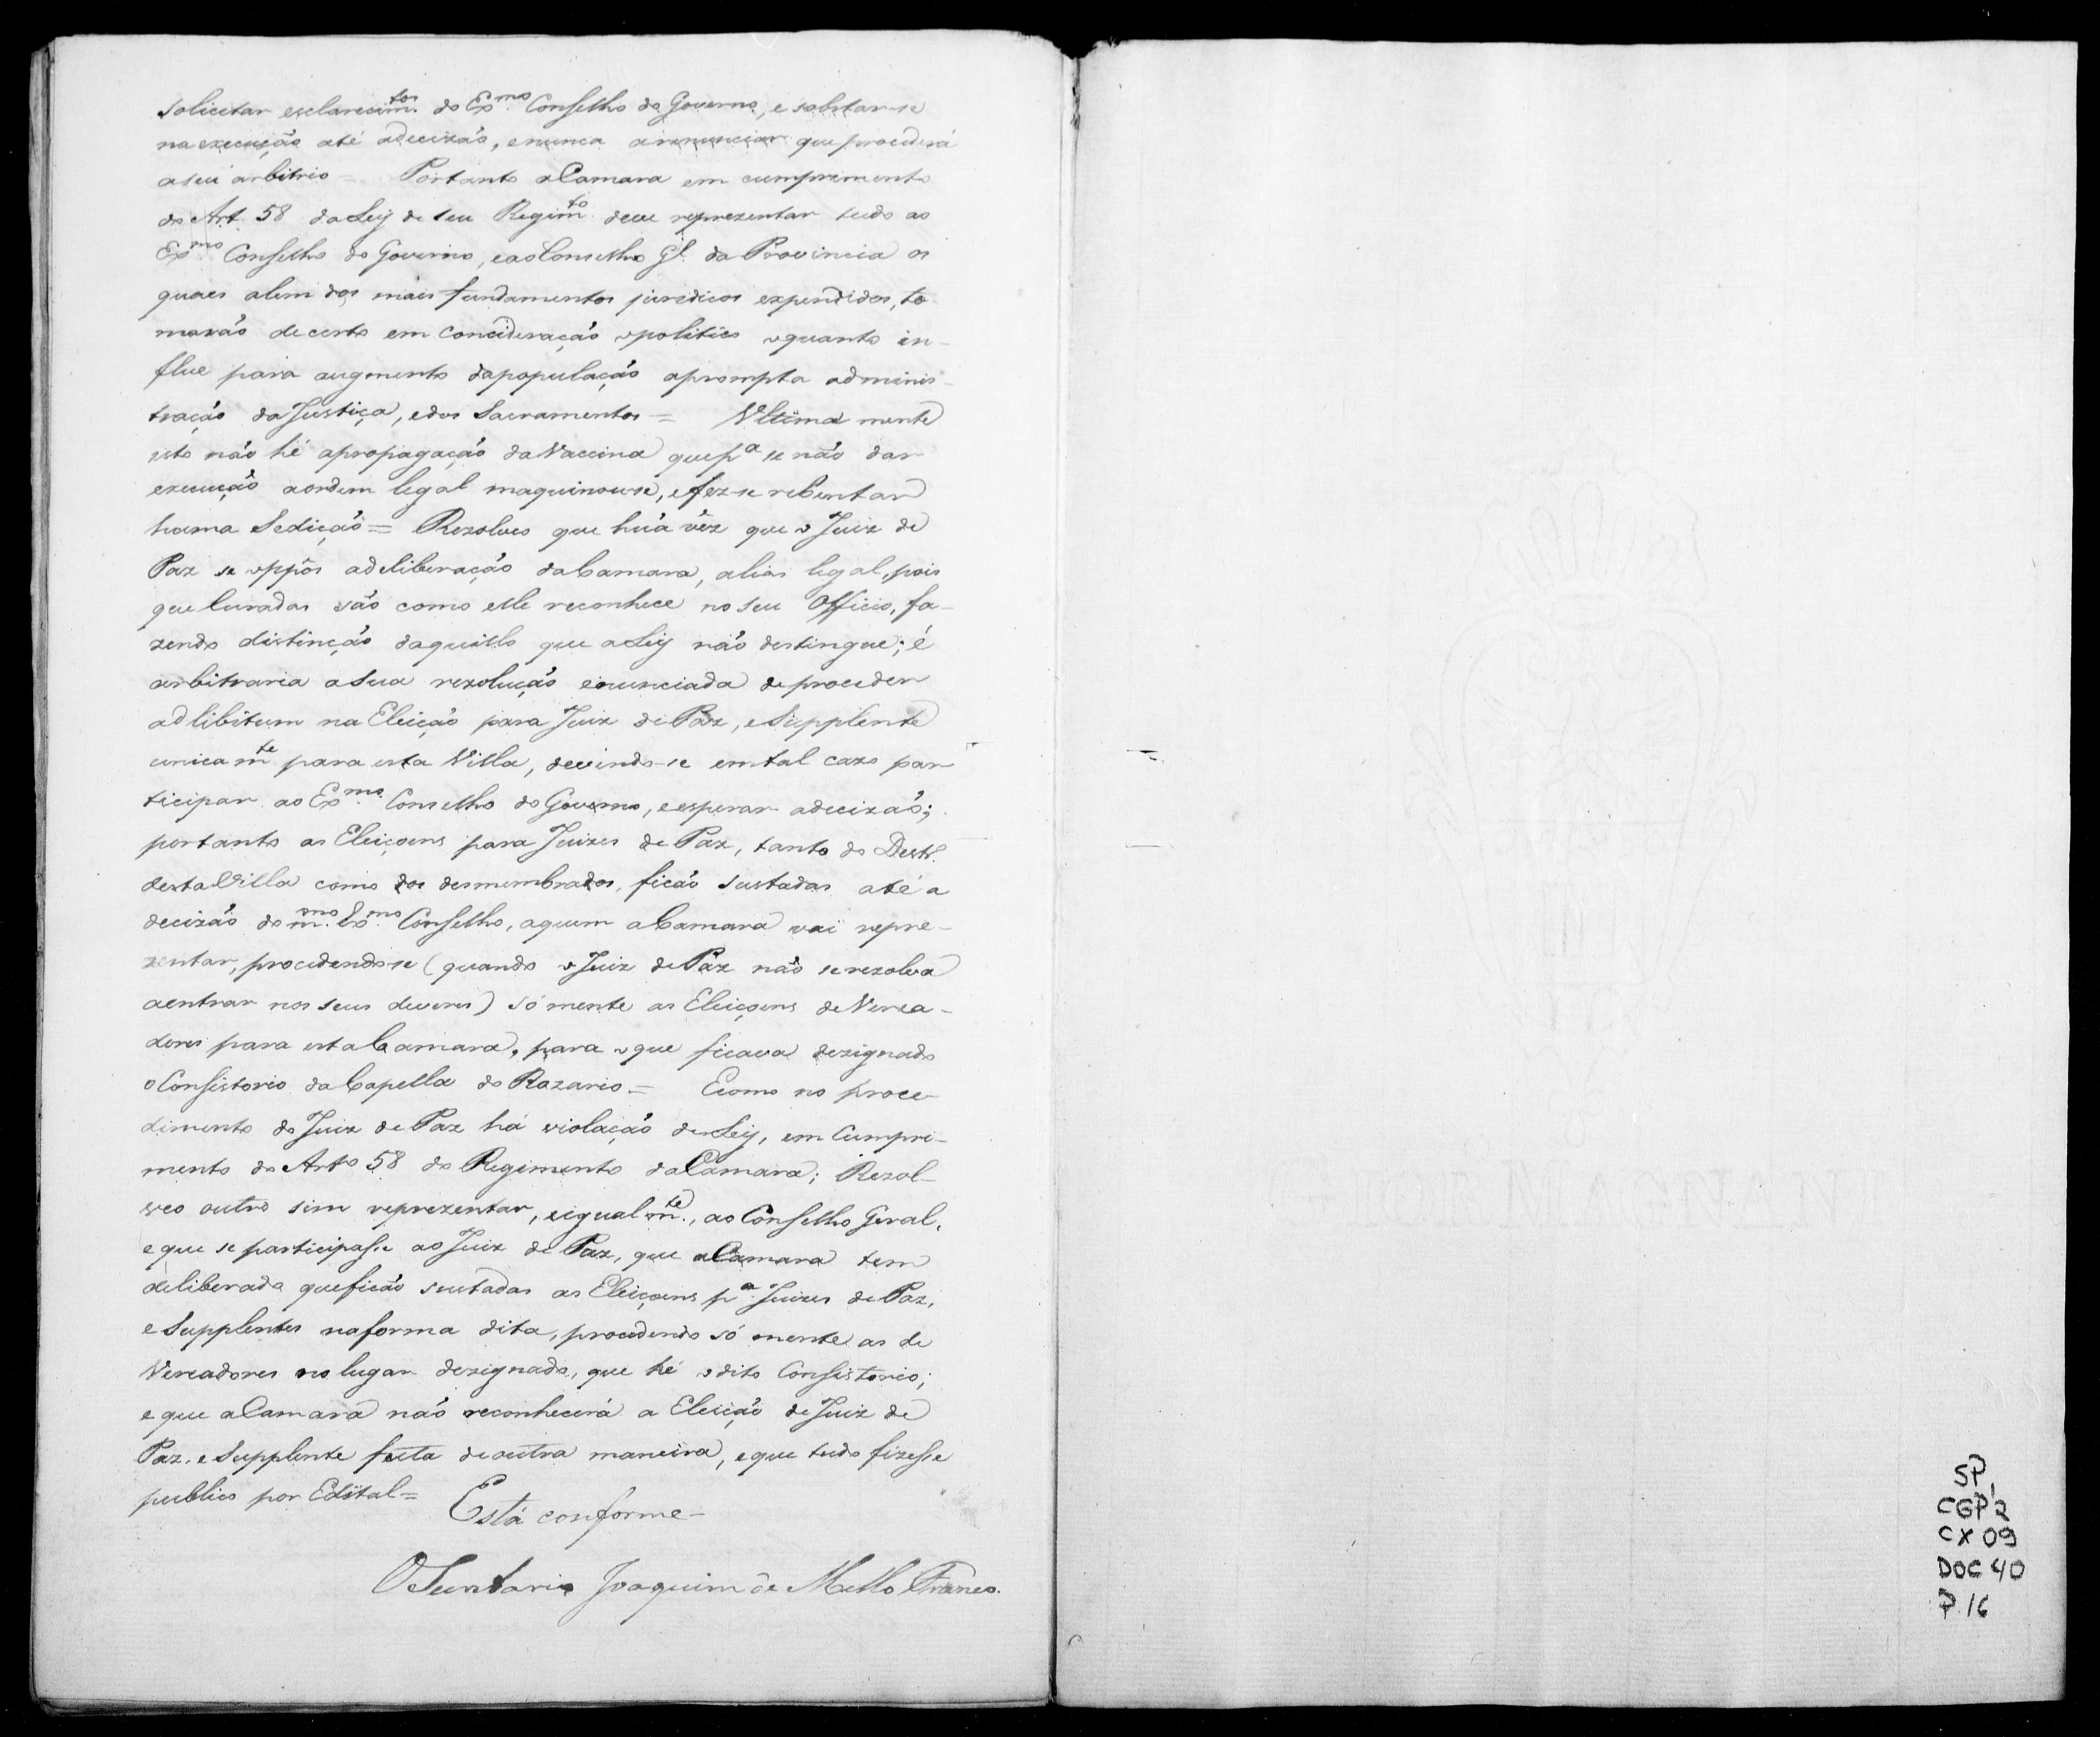 solicitar esclarecim.tos do Ex.mo Conselho do Governo, e sobstar-se
na execuição até adecizão, enunca annunciar que procederá
aseu arbitrio = Portanto aCamara em cumprimento
do Art. 58 daLey de seu Regim.to deve reprezentar tudo ao
Ex.mo Conselho do Governo, eaoConselho G.l da Provincia os
quaes alem dos mais fundamentos juridicos expendidos, to-
marão decerto em concideração opolitico oquanto in-
flue para augmento dapopulação aprompta adminis-
tração daJustiça, edos Sacramentos = Ultima mente
isto não hé apropagação daVaccina quep.a se não dar
execução aordem legal maquinou-se, efez-se rebentar
huma Sedição = Rezolveo que huã vêz que o Juiz de
Paz se oppôs adeliberação daCamara, alias legal, pois
que Curadas são como elle reconhece no seu Officio, fa-
zendo distinção daquillo que aLey não destingue; é
arbitraria asua rezolução enunciada de proceder
adlibitum na Eleição para Juiz de Paz, eSupplente
unicam.te para esta Villa, devendo-se emtal cazo par
ticipar ao Ex.mo Conselho do Governo, eesperar adecizão;
portanto as Eleiçoens para Juizes de Paz, tanto do Destr.
destaVilla como dos desmembrados, ficão sustadas até a
decizão do m.mo Ex.mo Conselho, aquem aCamara vai repre-
zentar, procedendo-se (quando oJuiz dePaz não serezolva
aentrar nos seus deveres) só mente as Eleiçoens deVerea-
dores para estaCamara, para oque ficava dezignado
oConsistorio daCapella do Rozario = Ecomo no proce-
dimento do Juiz de Paz há violação deLey, em Cumpri-
mento do Arto 58 do Regimento daCamara; Rezol-
veo outro sim reprezentar, eigualm.te, ao Conselho Geral,
eque se participasse ao Juiz de Paz, que aCamara tem
deliberado queficão sustadas as Eleiçoens p.a Juizes dePaz,
eSupplentes naforma dita, procedendo só mente as de
Vereadores no lugar dezignado, que hé odito Consistorio;
eque aCamara não reconhecerá a Eleição de Juiz de
Paz, eSupplente feita deoutra maneira, eque tudo fizesse
publico por Edital =
Está conforme -
OSecretario Joaquim de Mello Franco.
SP,
CGP 2
CX 09
DOC 40
P. 16